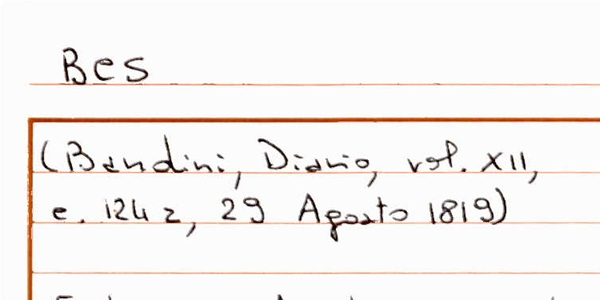 Bes
(Bandini, Diario, vol. XII,
c. 124 r, 29 Agosto 1819)